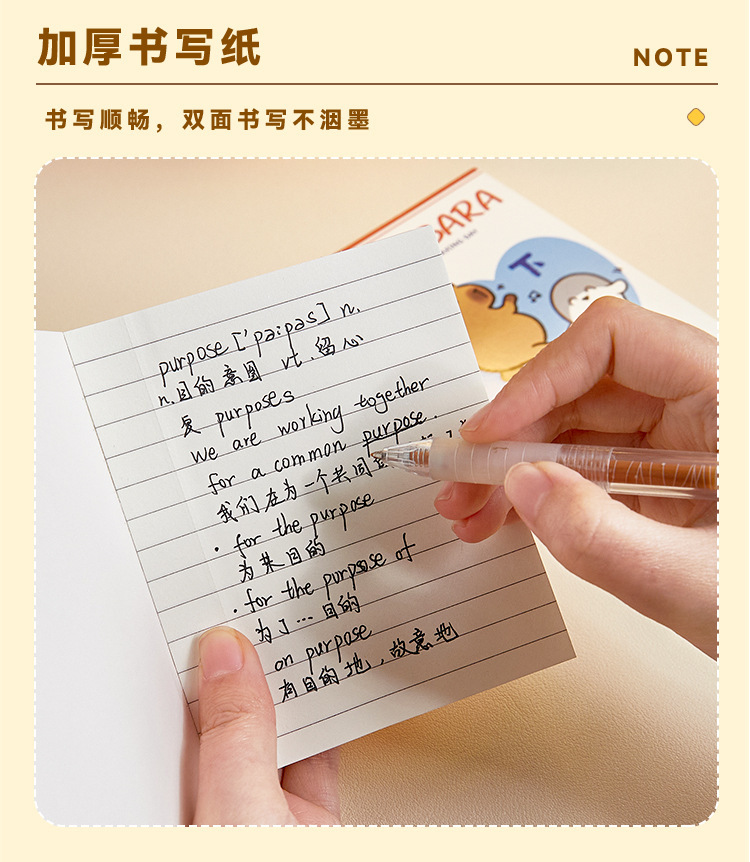 加厚书写纸
NOTE
书写顺畅，双面书写不洇墨
BARA
下
purpose ['pə:pəs] n.
n.目的 意图 vt.留心
复 purposes
we are working together
for a common purpose.
我们在为一个共同
· for the purpose
为某目的
· for the purpose of
为了…目的
on purpose
有目的地，故意地